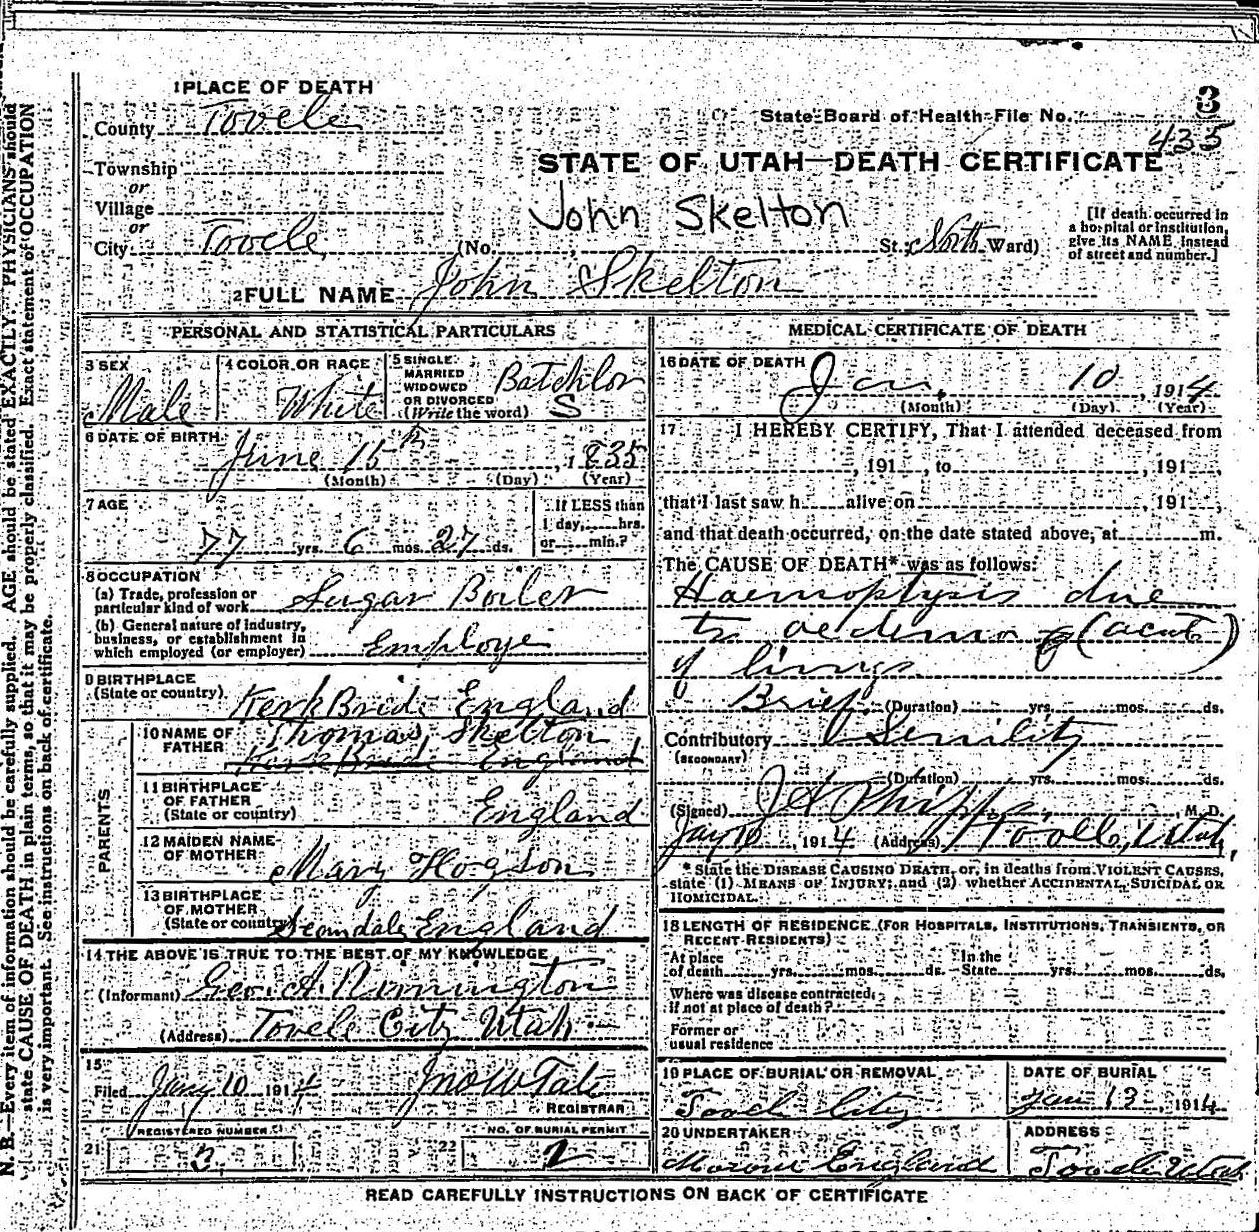 1 PLACE OF DEATH
County Tooele
Township
or
Village
or
City Tooele, (No. St.; North Ward)
3
State Board of Health File No.
435
STATE OF UTAH—DEATH CERTIFICATE
John Skelton
[If death occurred in
a hospital or institution,
give its NAME instead
of street and number.]
2 FULL NAME John Skelton
PERSONAL AND STATISTICAL PARTICULARS
3 SEX
Male
4 COLOR OR RACE
White
5 SINGLE
MARRIED
WIDOWED
OR DIVORCED
(Write the word)
Batchlor
S
6 DATE OF BIRTH
June 15th, 1835
(Month) (Day) (Year)
7 AGE
77 yrs. 6 mos. 27 ds.
If LESS than
1 day, hrs.
or min.?
8 OCCUPATION
(a) Trade, profession or
particular kind of work Sugar Boiler
(b) General nature of industry,
business, or establishment in
which employed (or employer) Employe
9 BIRTHPLACE
(State or country) Kerk Bride England
PARENTS
10 NAME OF
FATHER Thomas Skelton
Kerk Bride England
11 BIRTHPLACE
OF FATHER
(State or country) England
12 MAIDEN NAME
OF MOTHER Mary Hogson
13 BIRTHPLACE
OF MOTHER
(State or country) England
14 THE ABOVE IS TRUE TO THE BEST OF MY KNOWLEDGE
(Informant) Geo. A. Rimington
(Address) Tooele City Utah
15
Filed Jany 10 1914 Jno W Tate
REGISTRAR
REGISTERED NUMBER
21 3
NO. OF BURIAL PERMIT
22 2
MEDICAL CERTIFICATE OF DEATH
16 DATE OF DEATH
Jan. 10, 1914
(Month) (Day) (Year)
17 I HEREBY CERTIFY, That I attended deceased from
, 191 , to , 191 ,
that I last saw h alive on , 191 ,
and that death occurred, on the date stated above, at m.
The CAUSE OF DEATH* was as follows:
Haemoptysis due
to oedema (acute)
of lungs
Brief (Duration) yrs. mos. ds.
Contributory Senility
(SECONDARY)
(Duration) yrs. mos. ds.
(Signed) J A Phipps, M. D.
Jany 10, 1914 (Address) Tooele, Utah,
* State the DISEASE CAUSING DEATH, or, in deaths from VIOLENT CAUSES,
state (1) MEANS OF INJURY; and (2) whether ACCIDENTAL, SUICIDAL OR
HOMICIDAL.
18 LENGTH OF RESIDENCE (FOR HOSPITALS, INSTITUTIONS, TRANSIENTS, OR
RECENT RESIDENTS)
At place In the
of death yrs. mos. ds. State yrs. mos. ds.
Where was disease contracted,
if not at place of death?
Former or
usual residence
19 PLACE OF BURIAL OR REMOVAL
Tooele City
DATE OF BURIAL
Jan 13, 1914
20 UNDERTAKER
Moroni England
ADDRESS
Tooele Utah
READ CAREFULLY INSTRUCTIONS ON BACK OF CERTIFICATE
N. B.—Every item of information should be carefully supplied. AGE should be stated EXACTLY. PHYSICIANS should
state CAUSE OF DEATH in plain terms, so that it may be properly classified. Exact statement of OCCUPATION
is very important. See instructions on back of certificate.